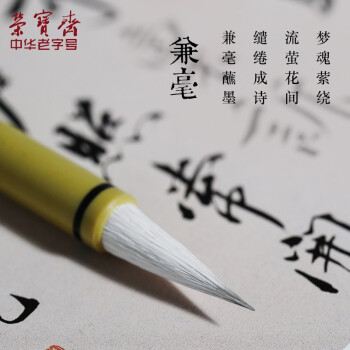 榮寶齋
中华老字号
兼毫
梦魂萦绕
流萤花间
缱绻成诗
兼毫蘸墨